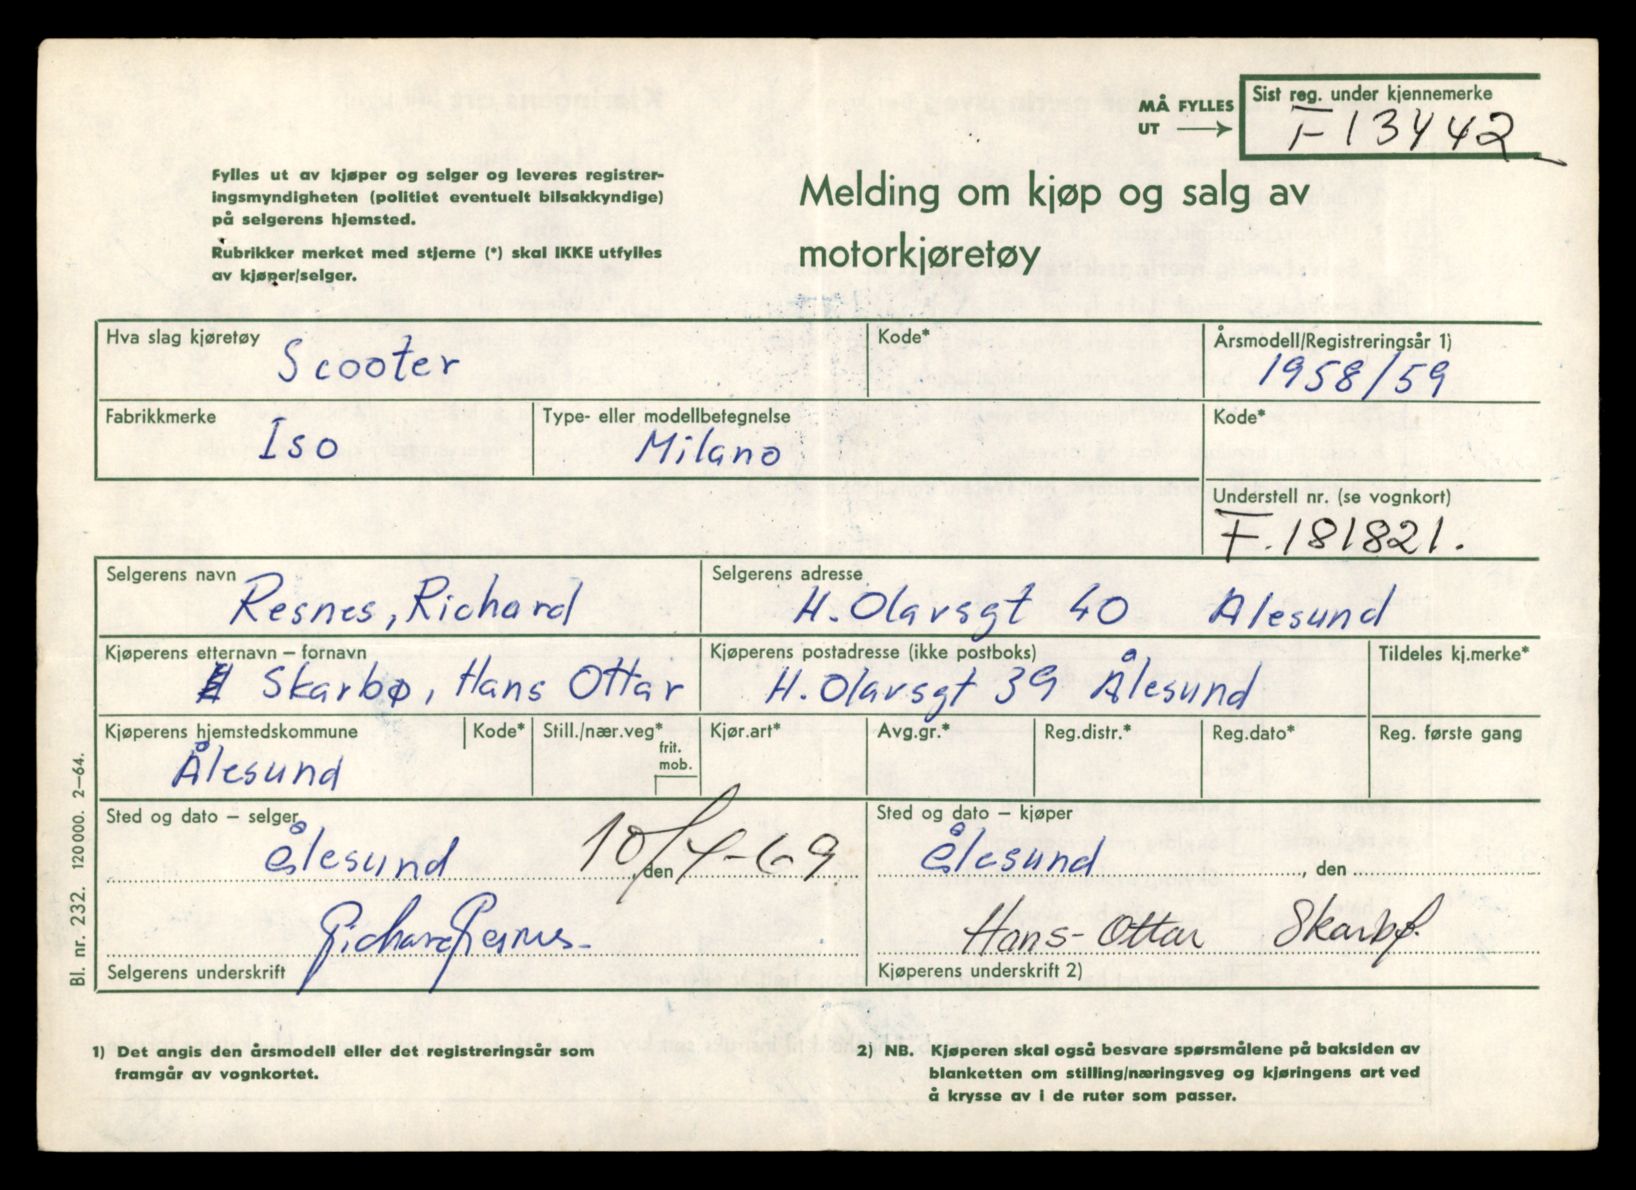 MÅ FYLLES
UT
Sist reg. under kjennemerke
T-13442
Fylles ut av kjøper og selger og leveres registrer-
ingsmyndigheten (politiet eventuelt bilsakkyndige)
på selgerens hjemsted.
Rubrikker merket med stjerne (*) skal IKKE utfylles
av kjøper/selger.
Melding om kjøp og salg av
motorkjøretøy
Hva slag kjøretøy
Scooter
Kode*
Årsmodell/Registreringsår 1)
1958/59
Fabrikkmerke
Iso
Type- eller modellbetegnelse
Milano
Kode*
Understell nr. (se vognkort)
F.181821.
Selgerens navn
Resnes, Richard
Selgerens adresse
H. Olavsgt 40 Ålesund
Kjøperens etternavn – fornavn
Skarbø, Hans Ottar
Kjøperens postadresse (ikke postboks)
H. Olavsgt 39 Ålesund
Tildeles kj.merke*
Kjøperens hjemstedskommune
Ålesund
Kode*
Still./nær.veg*
frit.
mob.
Kjør.art*
Avg.gr.*
Reg.distr.*
Reg.dato*
Reg. første gang
Sted og dato – selger
Ålesund, den 10/4-69
Richard Resnes
Selgerens underskrift
Sted og dato – kjøper
Ålesund, den
Hans-Ottar Skarbø.
Kjøperens underskrift 2)
Bl. nr. 232. 120 000. 2–64.
1) Det angis den årsmodell eller det registreringsår som
framgår av vognkortet.
2) NB. Kjøperen skal også besvare spørsmålene på baksiden av
blanketten om stilling/næringsveg og kjøringens art ved
å krysse av i de ruter som passer.